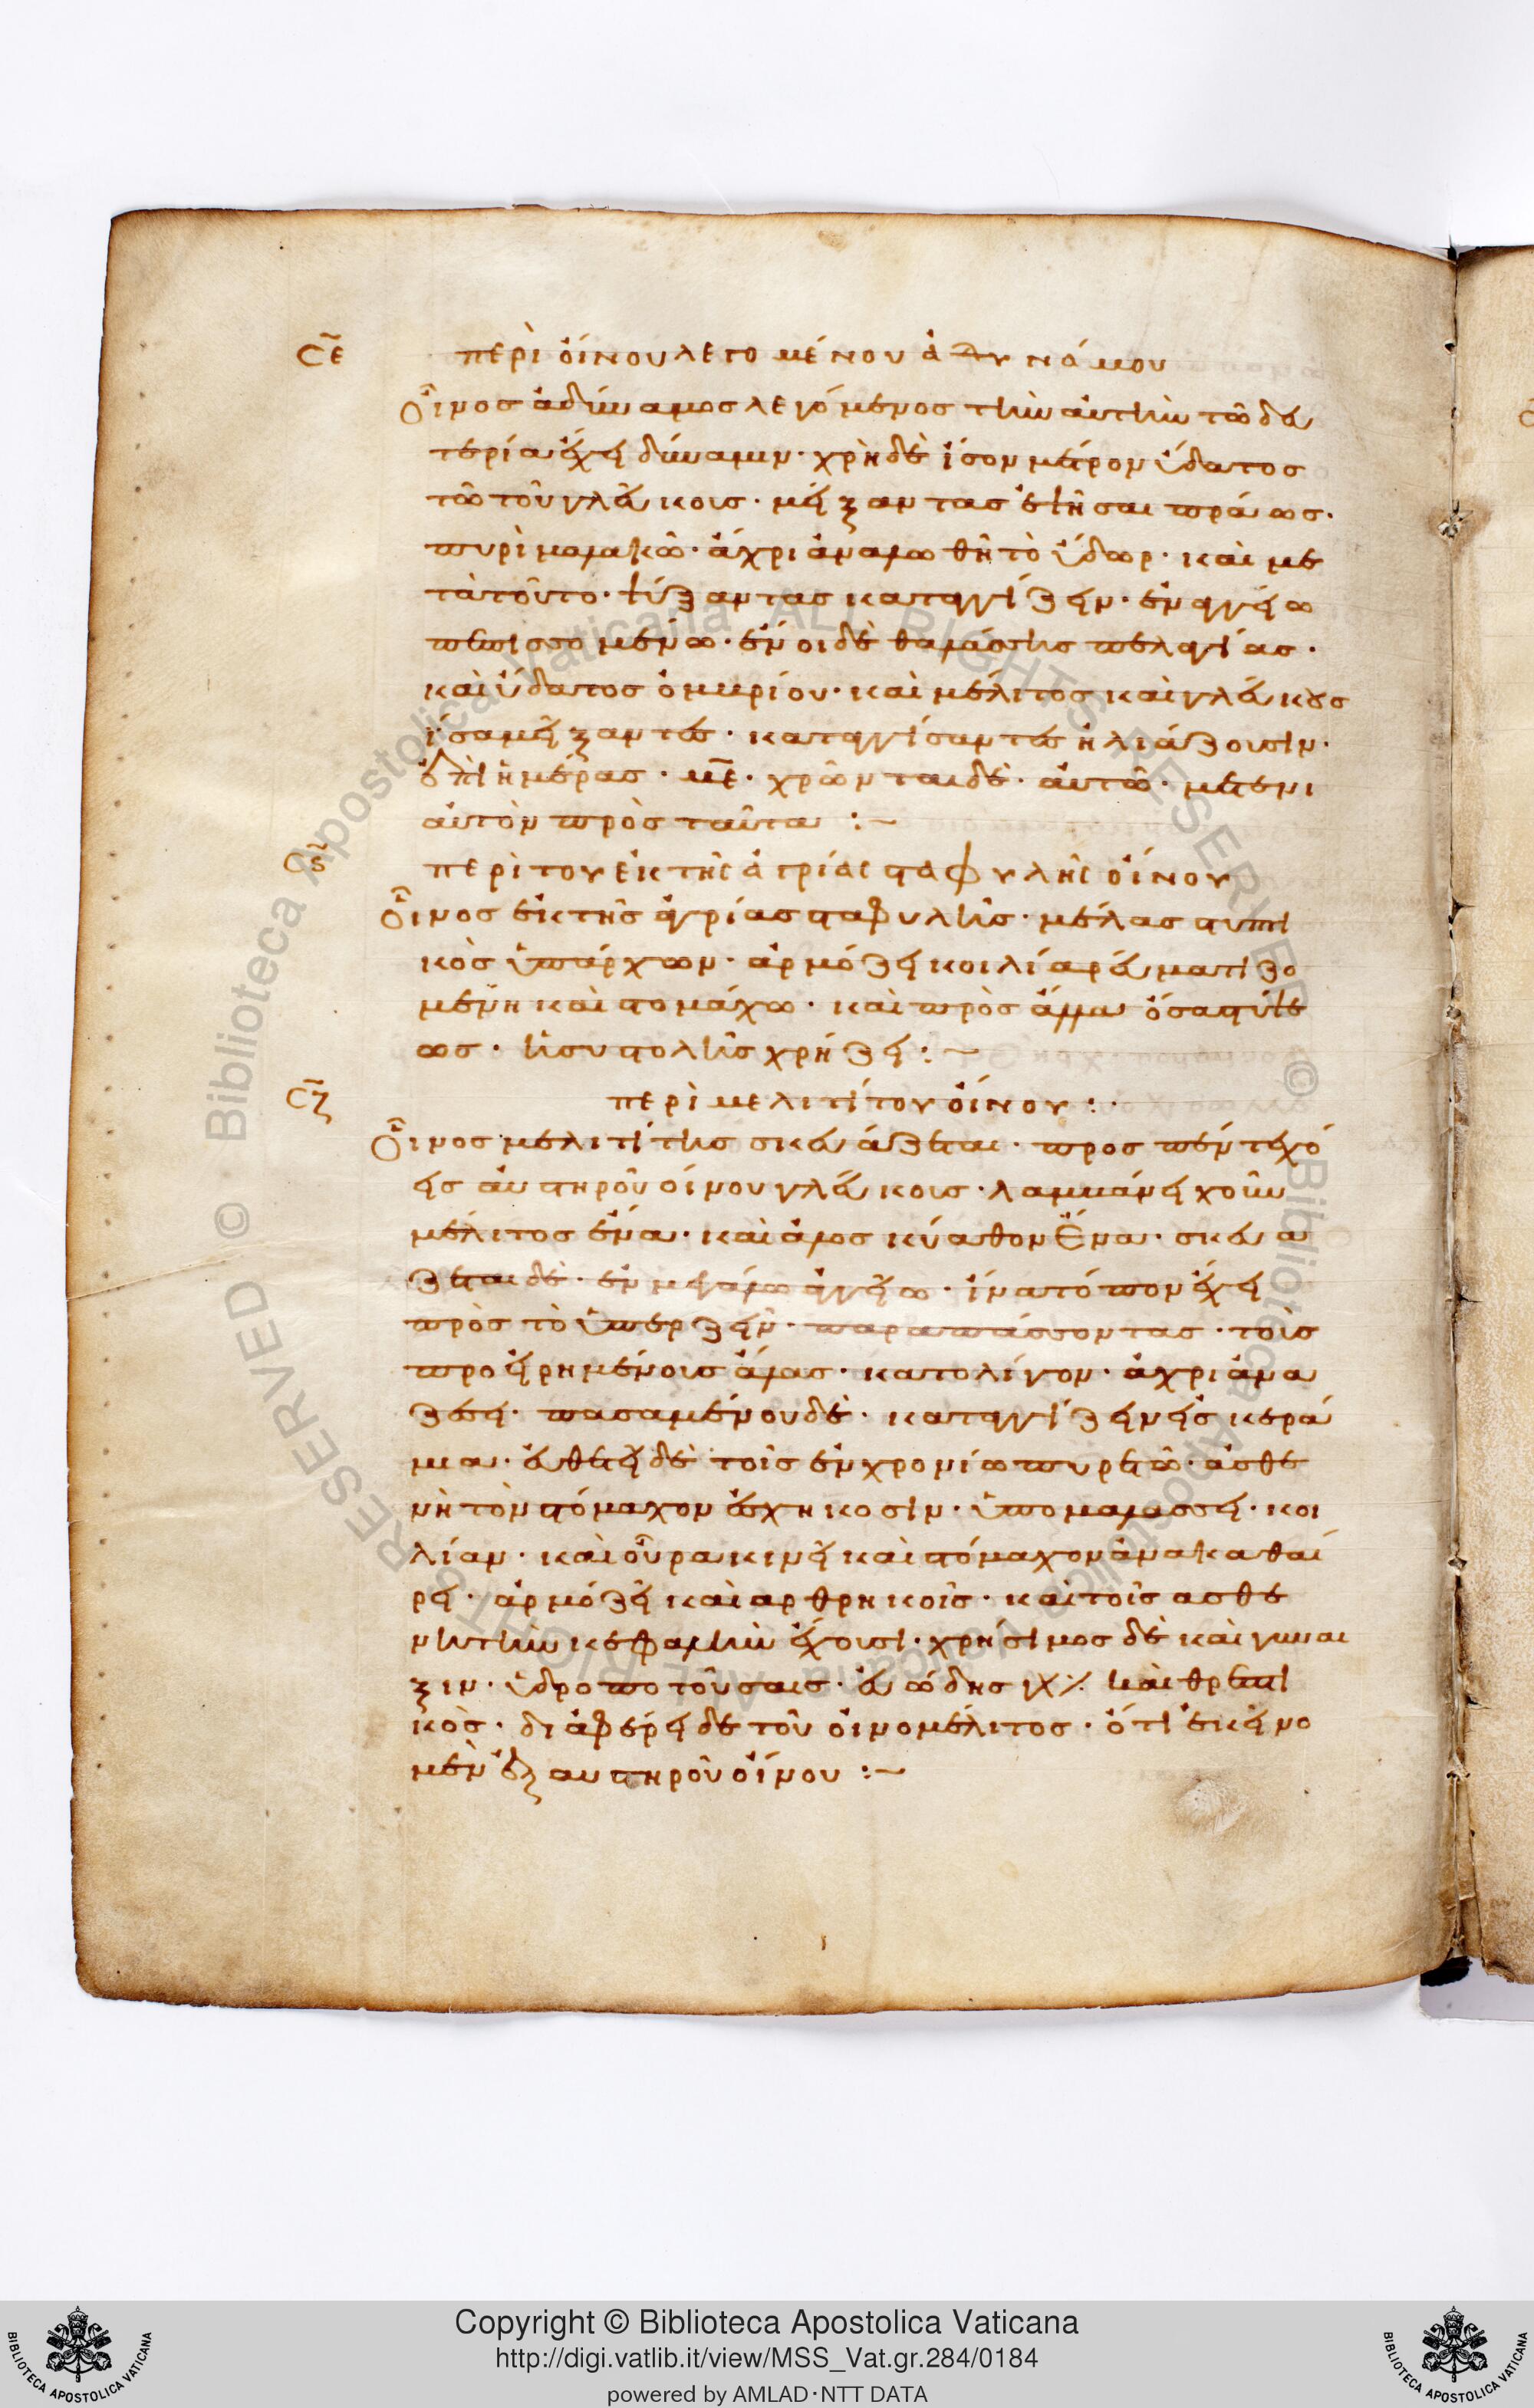 σε περὶ οἴνου λεγομένου ἀδυνάμου
Οἶνος ἀδύναμος λεγόμενος τὴν αὐτὴν τῶ δευ
τερία ἔχει δύναμιν· χρὴ δὲ ἴσον μέτρον ὕδατος
τῶ τοῦ γλεύκους· μείξαντας ἑψῆσαι πράως·
πυρὶ μαλακῶ· ἄχρι ἀναλωθῆ τὸ ὕδωρ· καὶ με
τὰ τοῦτο· ψύξαντας καταγγίζειν· ἐν ἀγγείω
πεπισσομένω· ἔνοι δὲ θαλάσσης πελαγίας·
καὶ ὕδατος ὀμβρίου· καὶ μέλιτος καὶ γλεύκους
ἴσα μείξαντες· καταγγίσαντες ἡλιάζουσιν·
ἐπὶ ἡμέρας· με· χρῶνται δὲ· αὐτῶ· μετένι
αὐτὸν πρὸς ταῦτα :~
σς περὶ του ἐκ τῆς ἀγρίας σταφυλῆς οἴνου
Οἶνος ἐκ τῆς ἀγρίας σταφυλῆς· μέλας στυπτι
κὸς ὑπάρχων· ἁρμόζει κοιλία ρευματιζο
μένη καὶ στομάχω· καὶ πρὸς ἄλλα ὅσα στύψε
ως· ἢ συστολῆς χρήζει :~
σζ περὶ μελιτίτου οἴνου :·
Οἶνος μελιτίτης σκευάζεται· προς πέντε χό
ες αὐστηροῦ οίνου γλεύκους· λαμβάνει χοῦν
μέλιτος ἕνα· καὶ ἁλὸς κύαθον ἕνα· σκευα
ζεται δὲ· ἐν μεγάλω ἀγγείω· ἵνα τόπον ἔχη
πρὸς τὸ ὑπερζεῖν· παραπάσσοντας· τοὺς
προειρημένους ἅλας· κατολίγον· ἄχρι ἀνα
ζέσει· πασαμένου δὲ· καταγγίζειν εἰς κερά
μια· εὐθετεῖ δὲ τοῖς ἐν χρονίω πυρετῶ· ἀσθε
νῆ τὸν στόμαχον ἐσχηκοσιν· ὑπομαλασσει· κοι
λίαν· καὶ οὖρα κινεῖ καὶ στόμαχον ἀνακαθαί
ρει· ἁρμόζει καὶ αρθρητικοῖς· καὶ τοῖς ασθε
νῆ τὴν κεφαλὴν ἔχουσι· χρήσιμος δὲ καὶ γυναι
ξιν· ὑδροποτούσαις· εὐώδης καὶ θρεπτι
κὸς· διαφέρει δὲ τοῦ οἰνομέλιτος· ὅτι ἐκεῖνο
μὲν ἐξ αυστηροῦ οἴνου :~
Copyright © Biblioteca Apostolica Vaticana
http://digi.vatlib.it/view/MSS_Vat.gr.284/0184
powered by AMLAD·NTT DATA